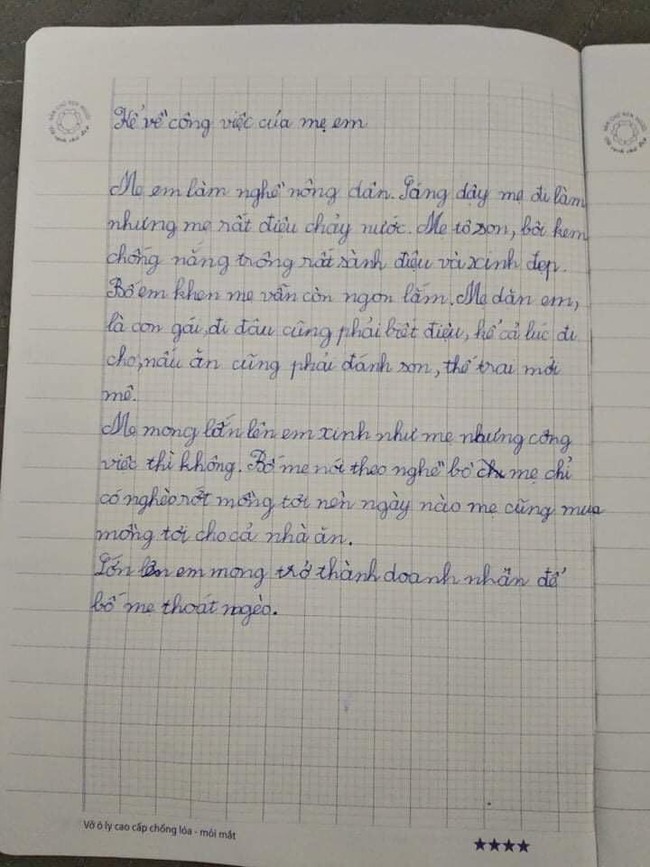 Kể về công việc của mẹ em
Mẹ em làm nghề nông dân. Sáng dậy mẹ đi làm
nhưng mẹ rất điệu chảy nước. Mẹ tô son, bôi kem
chống nắng trông rất sành điệu và xinh đẹp.
Bố em khen mẹ vẫn còn ngon lắm. Mẹ dặn em,
là con gái, đi đâu cũng phải biết điệu, kể cả lúc đi
chợ, nấu ăn cũng phải đánh son, thế trai mới
mê.
Mẹ mong lớn lên em xinh như mẹ nhưng công
việc thì không. Bố mẹ nói theo nghề bố mẹ chỉ
có nghèo rớt mồng tơi nên ngày nào mẹ cũng mua
mồng tơi cho cả nhà ăn.
Lớn lên em mong trở thành doanh nhân để
bố mẹ thoát ngèo.
Vở ô ly cao cấp chống lóa - mỏi mắt
★★★★